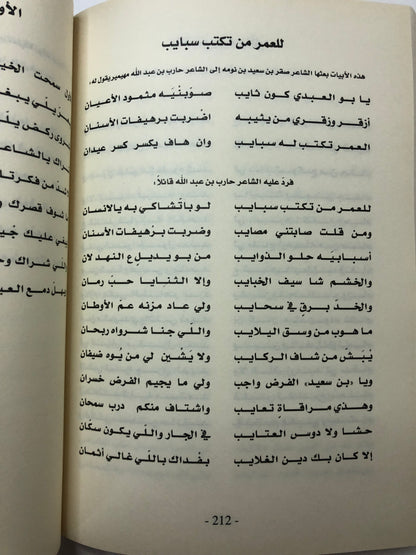 للعمر من تكتب سبايب
هذه الأبيات بعثها الشاعر صقر بن سعيد بن نومه إلى الشاعر حارب بن عبد الله مهيمير يقول له:
يا بو العبدي كون ثايب صوبنيه مثمود الأعيان
أزقر وزقري من يثيبه اضربت برهيفات الأسنان
العمر تكتب له سبايب وان هاف يكسر كسر عيدان
فردّ عليه الشاعر حارب بن عبد الله قائلاً:
للعمر من تكتب سبايب لو باتْشاكي به يالانسان
ومن قلت صابتني مصايب وضربت برْهيفات الأسنان
أسبابيّه حلو الذوايب من بو يديلٍ ع النهد لان
والخشم شا سيف الخبايب وإلا الثنايا حبّ رمان
والخدّ برقٍ في سحايب ولي عاد مزنه عمّ الأوطان
ما هوب من وسق اليلايب واللي جنا شرواه ريحان
يُبَشّ من شاف الركايب ولا يَشْين لي من يُوه ضيفان
ويا «بن سعيد» الفرض واجب ولي ما يجيم الفرض خسران
وهذي مراقاةٍ تعايب واشتاف منكم درب سمحان
حشا ولا دوس العتايب في الجار واللّي يكون سكّان
إلا كان بك دين الغلايب بفداك باللّي غالي أثمان
- 212 -
الأو
أول سمحت الخيـ